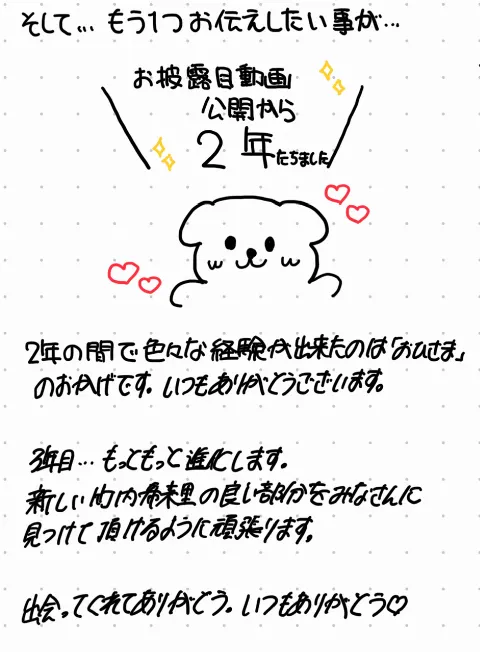 そして... もう1つお伝えしたい事が...
お披露目動画
公開から
2年たちました
2年の間で色々な経験が出来たのは「おひさま」
のおかげです。いつもありがとうございます。
3年目... もっともっと進化します。
新しい竹内希来里の良い部分をみなさんに
見つけて頂けるように頑張ります。
出会ってくれてありがとう。いつもありがとう♡